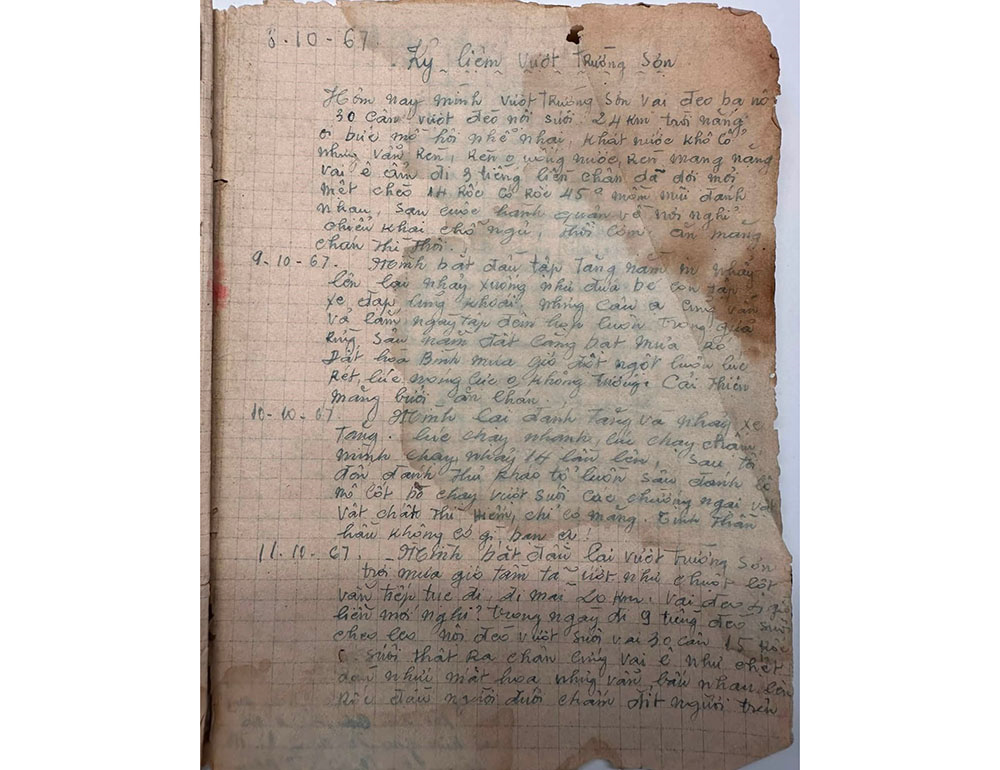 8-10-67
Kỷ liệm vượt Trường Sơn
Hôm nay mình vượt Trường Sơn vai đeo ba nô
30 cân vượt đèo nôi suối 24 km trời nắng
o bức mồ hôi nhễ nhại, khát nước khô cổ
nhưng vẫn rèn, rèn o uống nước, rèn mang nặng
vai ê ẩm đi 3 tiếng liền chân đã đời mỏi
mệt chèo 14 rốc có rốc 45° mồm mũi đanh
nhau, sau cuộc hành quân về nơi nghỉ
chiều khai chỗ ngủ, thổi cơm ăn măng
chán thì thôi.
9-10-67. Mình bắt đầu tập tăng nắm nhảy
lên lại nhảy xuống như đứa bé con tập
xe đạp cũng khoái, nhưng câu a cũng vẫn
vả lắm ngày tập đêm luôn trong
rừng sâu nằm đất căng bạt mưa
Đất hoà Bình mưa gió đột ngột lúc
rét, lúc nóng lúc o không tưởng. Cải thiện
măng bưởi ăn chán.
10-10-67. Mình lại đanh tăng và nhảy xe
tăng. lúc chạy nhanh, lúc chạy chậm
mình chạy nhảy 14 lần lên, sau tổ
đôn đanh thử pháo tổ luôn sâu đanh
mô cốt bò chạy vượt suối các chướng ngại vật
vật chất thì hiếm, chỉ có măng. Tinh thần
hầu không có gì bạn ạ!
11-10-67. Mình bắt đầu lại vượt Trường Sơn
trời mưa gió tầm tã ướt như chuột lột
vẫn tiếp tục đi, đi mãi 20 km. Vai đeo 4 giờ
liền mới nghỉ? trong ngày đi 9 tiếng đèo suối
cheo leo nôi đèo vượt suối vai 30 cân 15 rốc
suối thật ra chân cứng vai ê như chết
như mắt hoa nhưng vẫn bấu nhau lên
rốc đầu người dưới chấm đít người trên